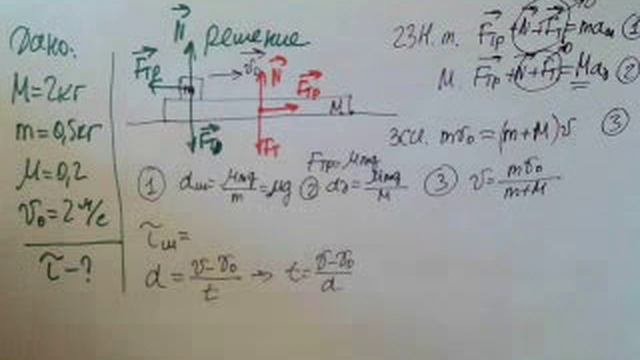 Дано:
M=2кг
m=0,5кг
μ=0,2
v₀=2м/с
τ-?
Решение
N
Fтр
v₀
N
Fтр
M
Fт
Fт
2ЗН. m. Fтр+N+Fт=maм ①
0
M Fтр+N+Fт=Maд ②
0
ЗСИ. mv₀=(m+M)v ③
Fтр=μmg
① aм=μmg/m=μg ② aд=μmg/M ③ v=mv₀/m+M
τм=
a=v-v₀/t → t=v-v₀/a